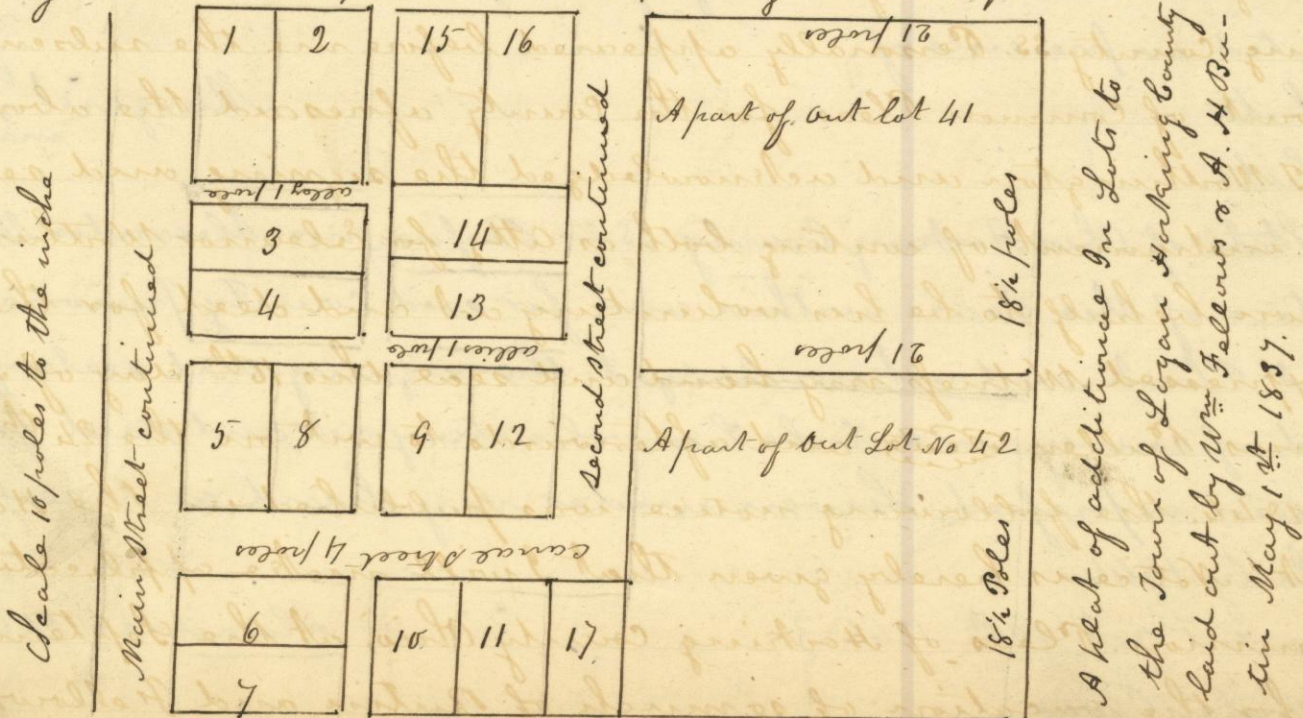 Scale 10 poles to the inche
Main Street continued
1
2
15
16
alley 1 pole
3
4
14
13
allies 1 pole
5
8
9
12
canal Street 4 poles
6
7
10
11
17
second street continued
21 poles
A part of out lot 41
18½ poles
21 poles
A part of Out Lot No 42
18½ Poles
A plat of additionce In Lots to
the Town of Logan Hocking County
laid out by Wm Fellows & A. H Bu-
tin May 1st 1837.